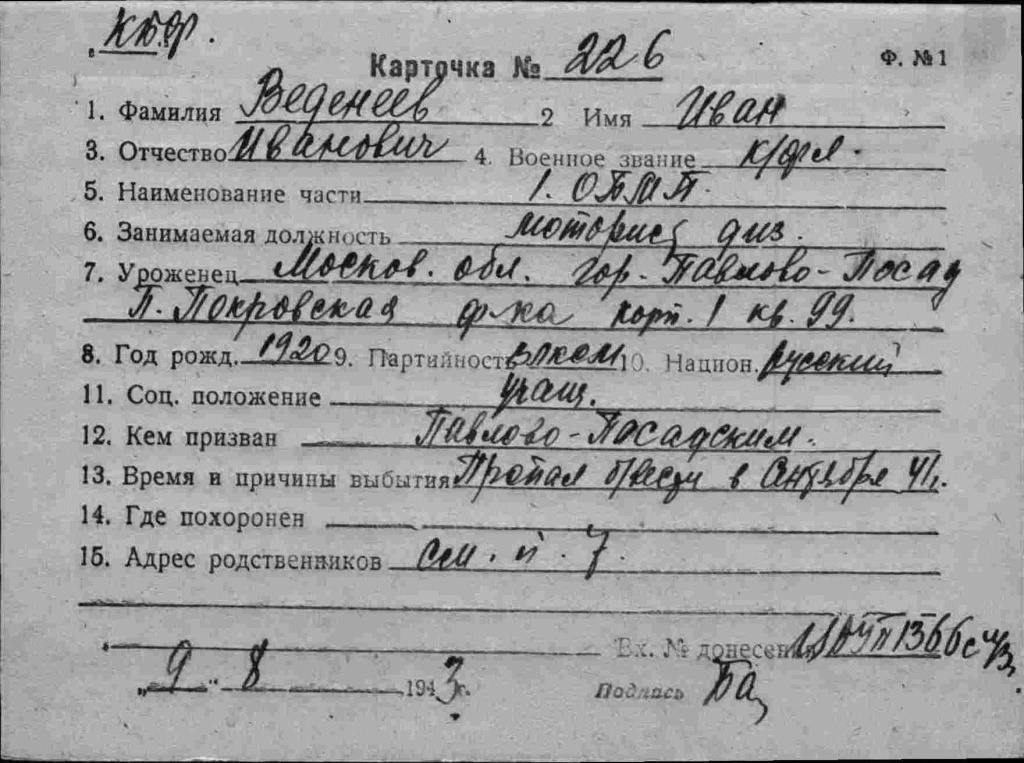 КБФ.
Карточка № 226 Ф. №1
1. Фамилия Веденеев 2 Имя Иван
3. Отчество Иванович 4. Военное звание к/фл.
5. Наименование части 1. ОБМП.
6. Занимаемая должность моторист диз.
7. Уроженец Москов. обл. гор. Павлово-Посад
П. Покровская ф-ка корп. 1 кв. 99.
8. Год рожд. 1920 9. Партийность ВЛКСМ 10. Национ. русский
11. Соц. положение учащ.
12. Кем призван Павлово-Посадским.
13. Время и причины выбытия Пропал б/вести в Сентябре 41г.
14. Где похоронен
15. Адрес родственников См. п. 7.
Вх. № донесения 1366с
„9" 8 1943г. Подпись